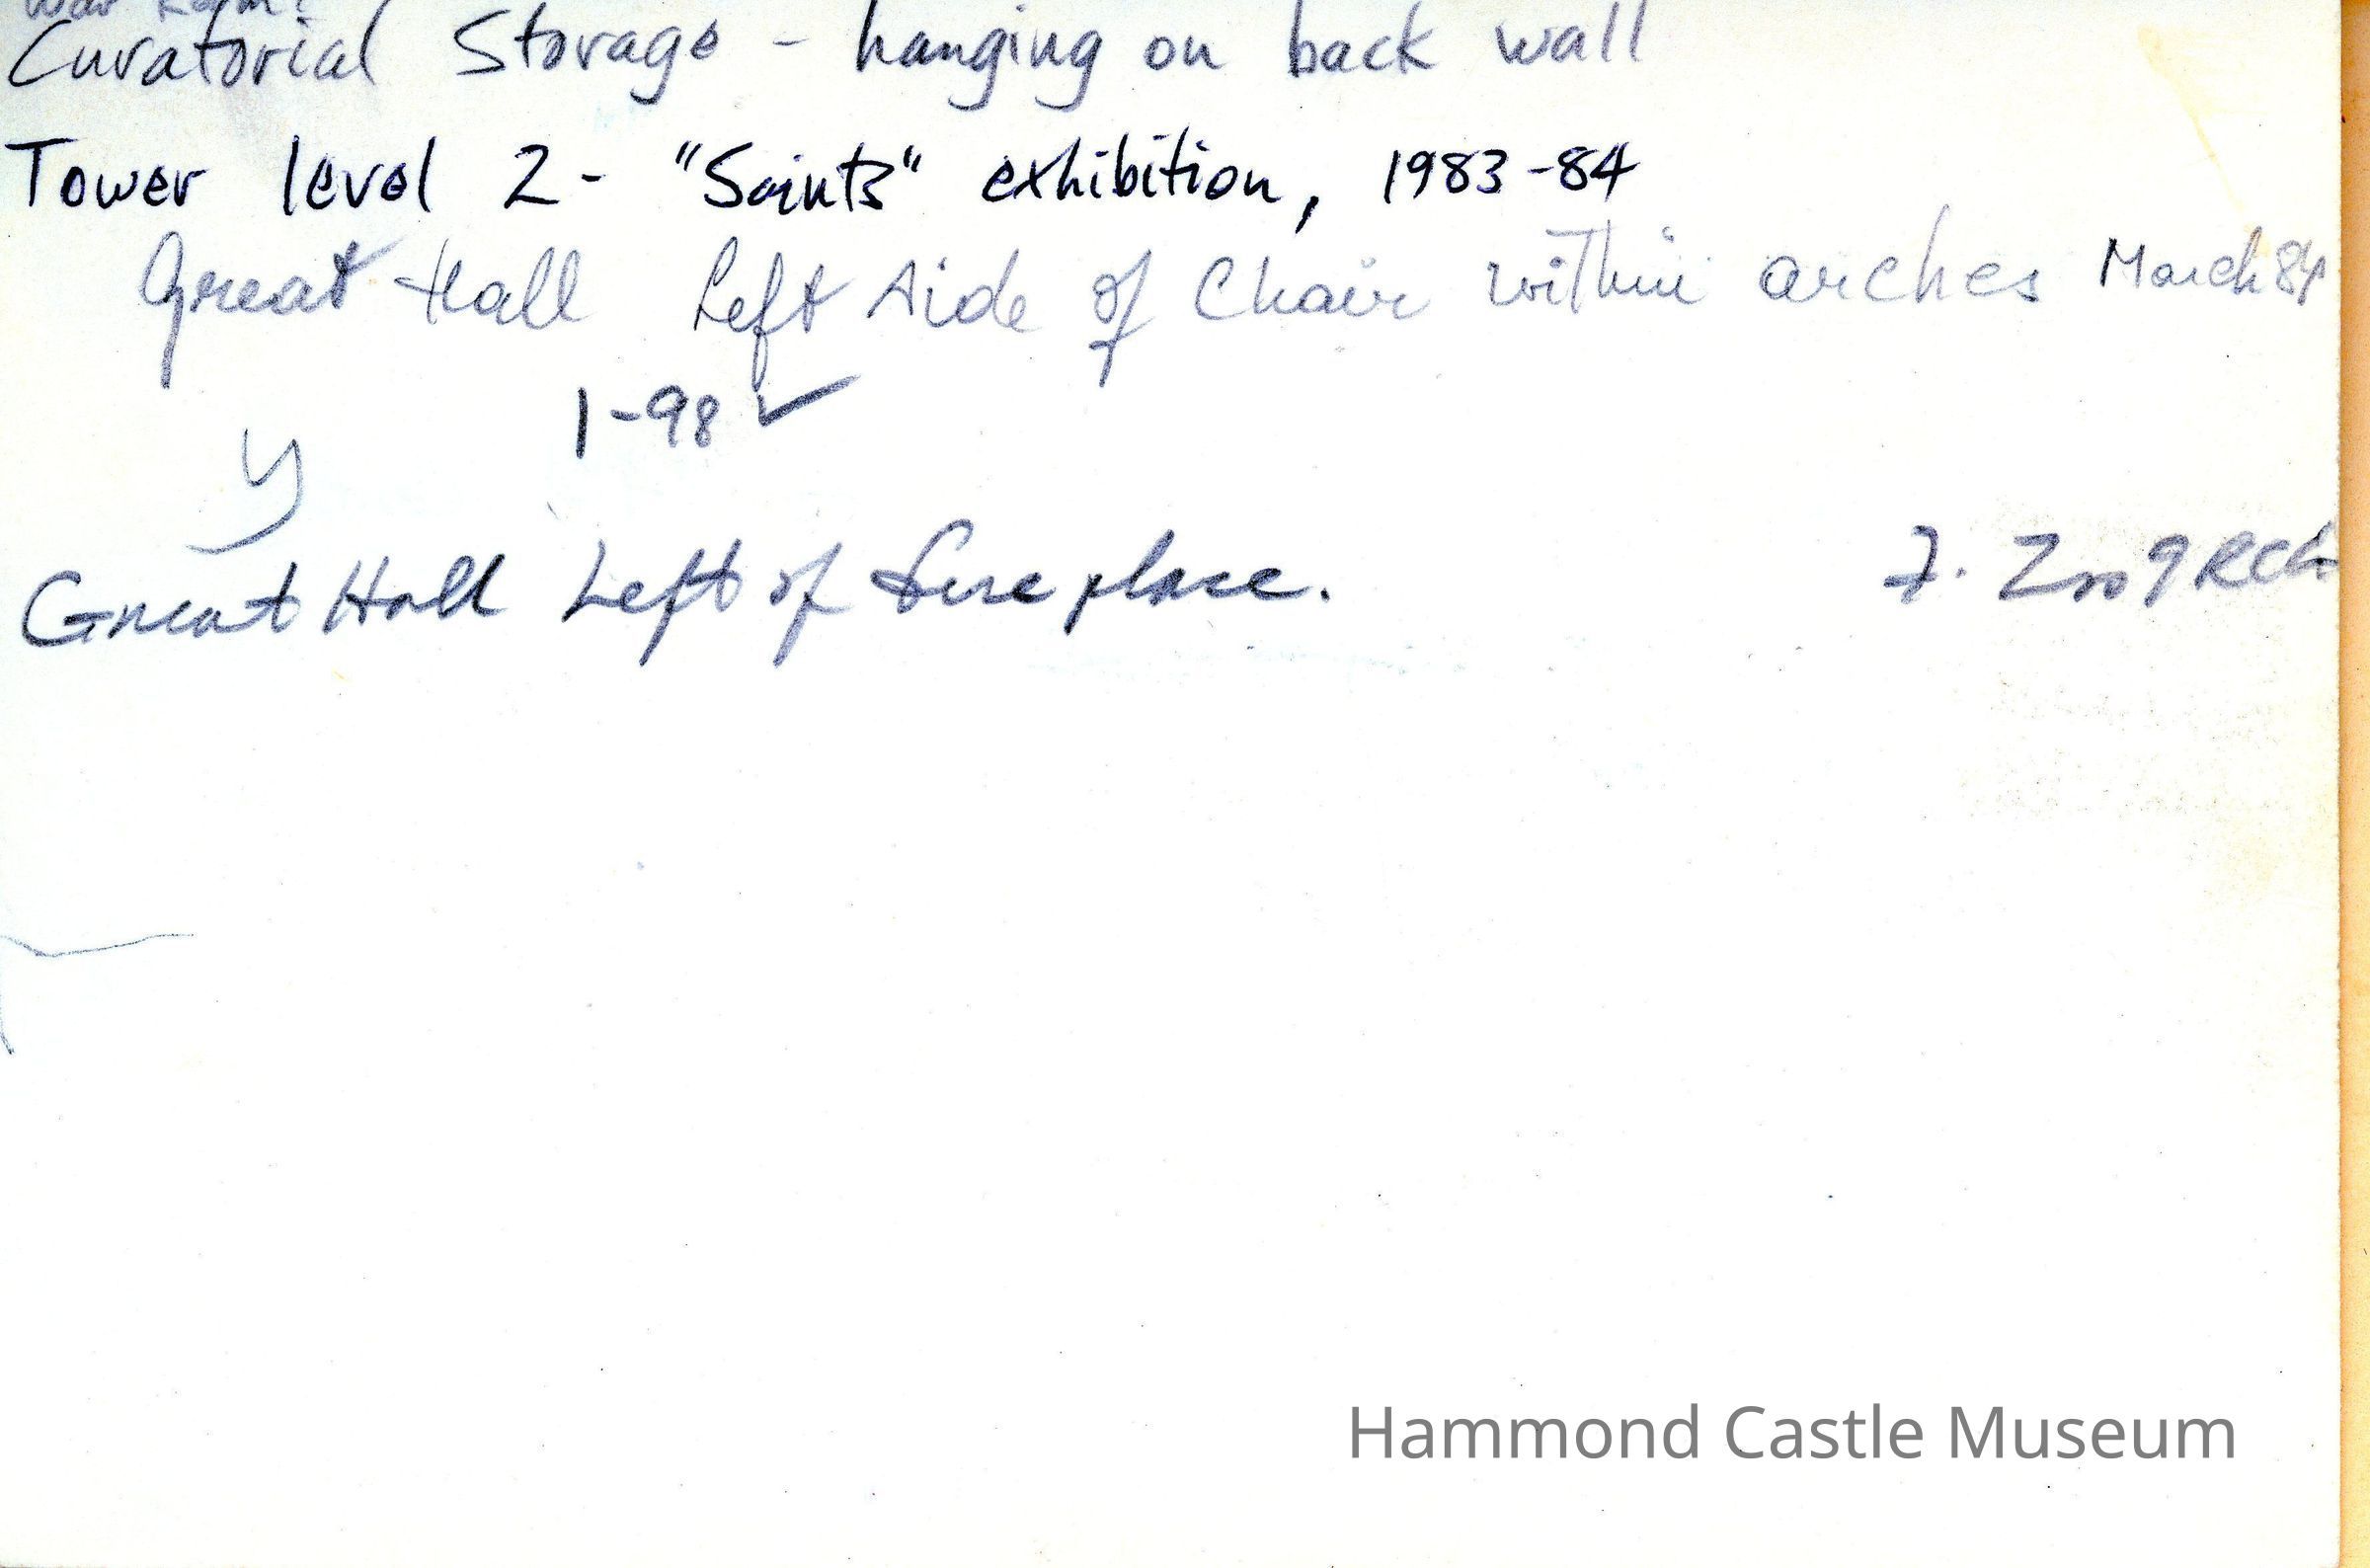 War Room
Curatorial Storage - hanging on back wall
Tower level 2 - "Saints" exhibition, 1983-84
Great Hall Left side of Chair within arches March 84
1-98 ✓
y
Great Hall Left of fireplace. 7. 2009 RCL
Hammond Castle Museum